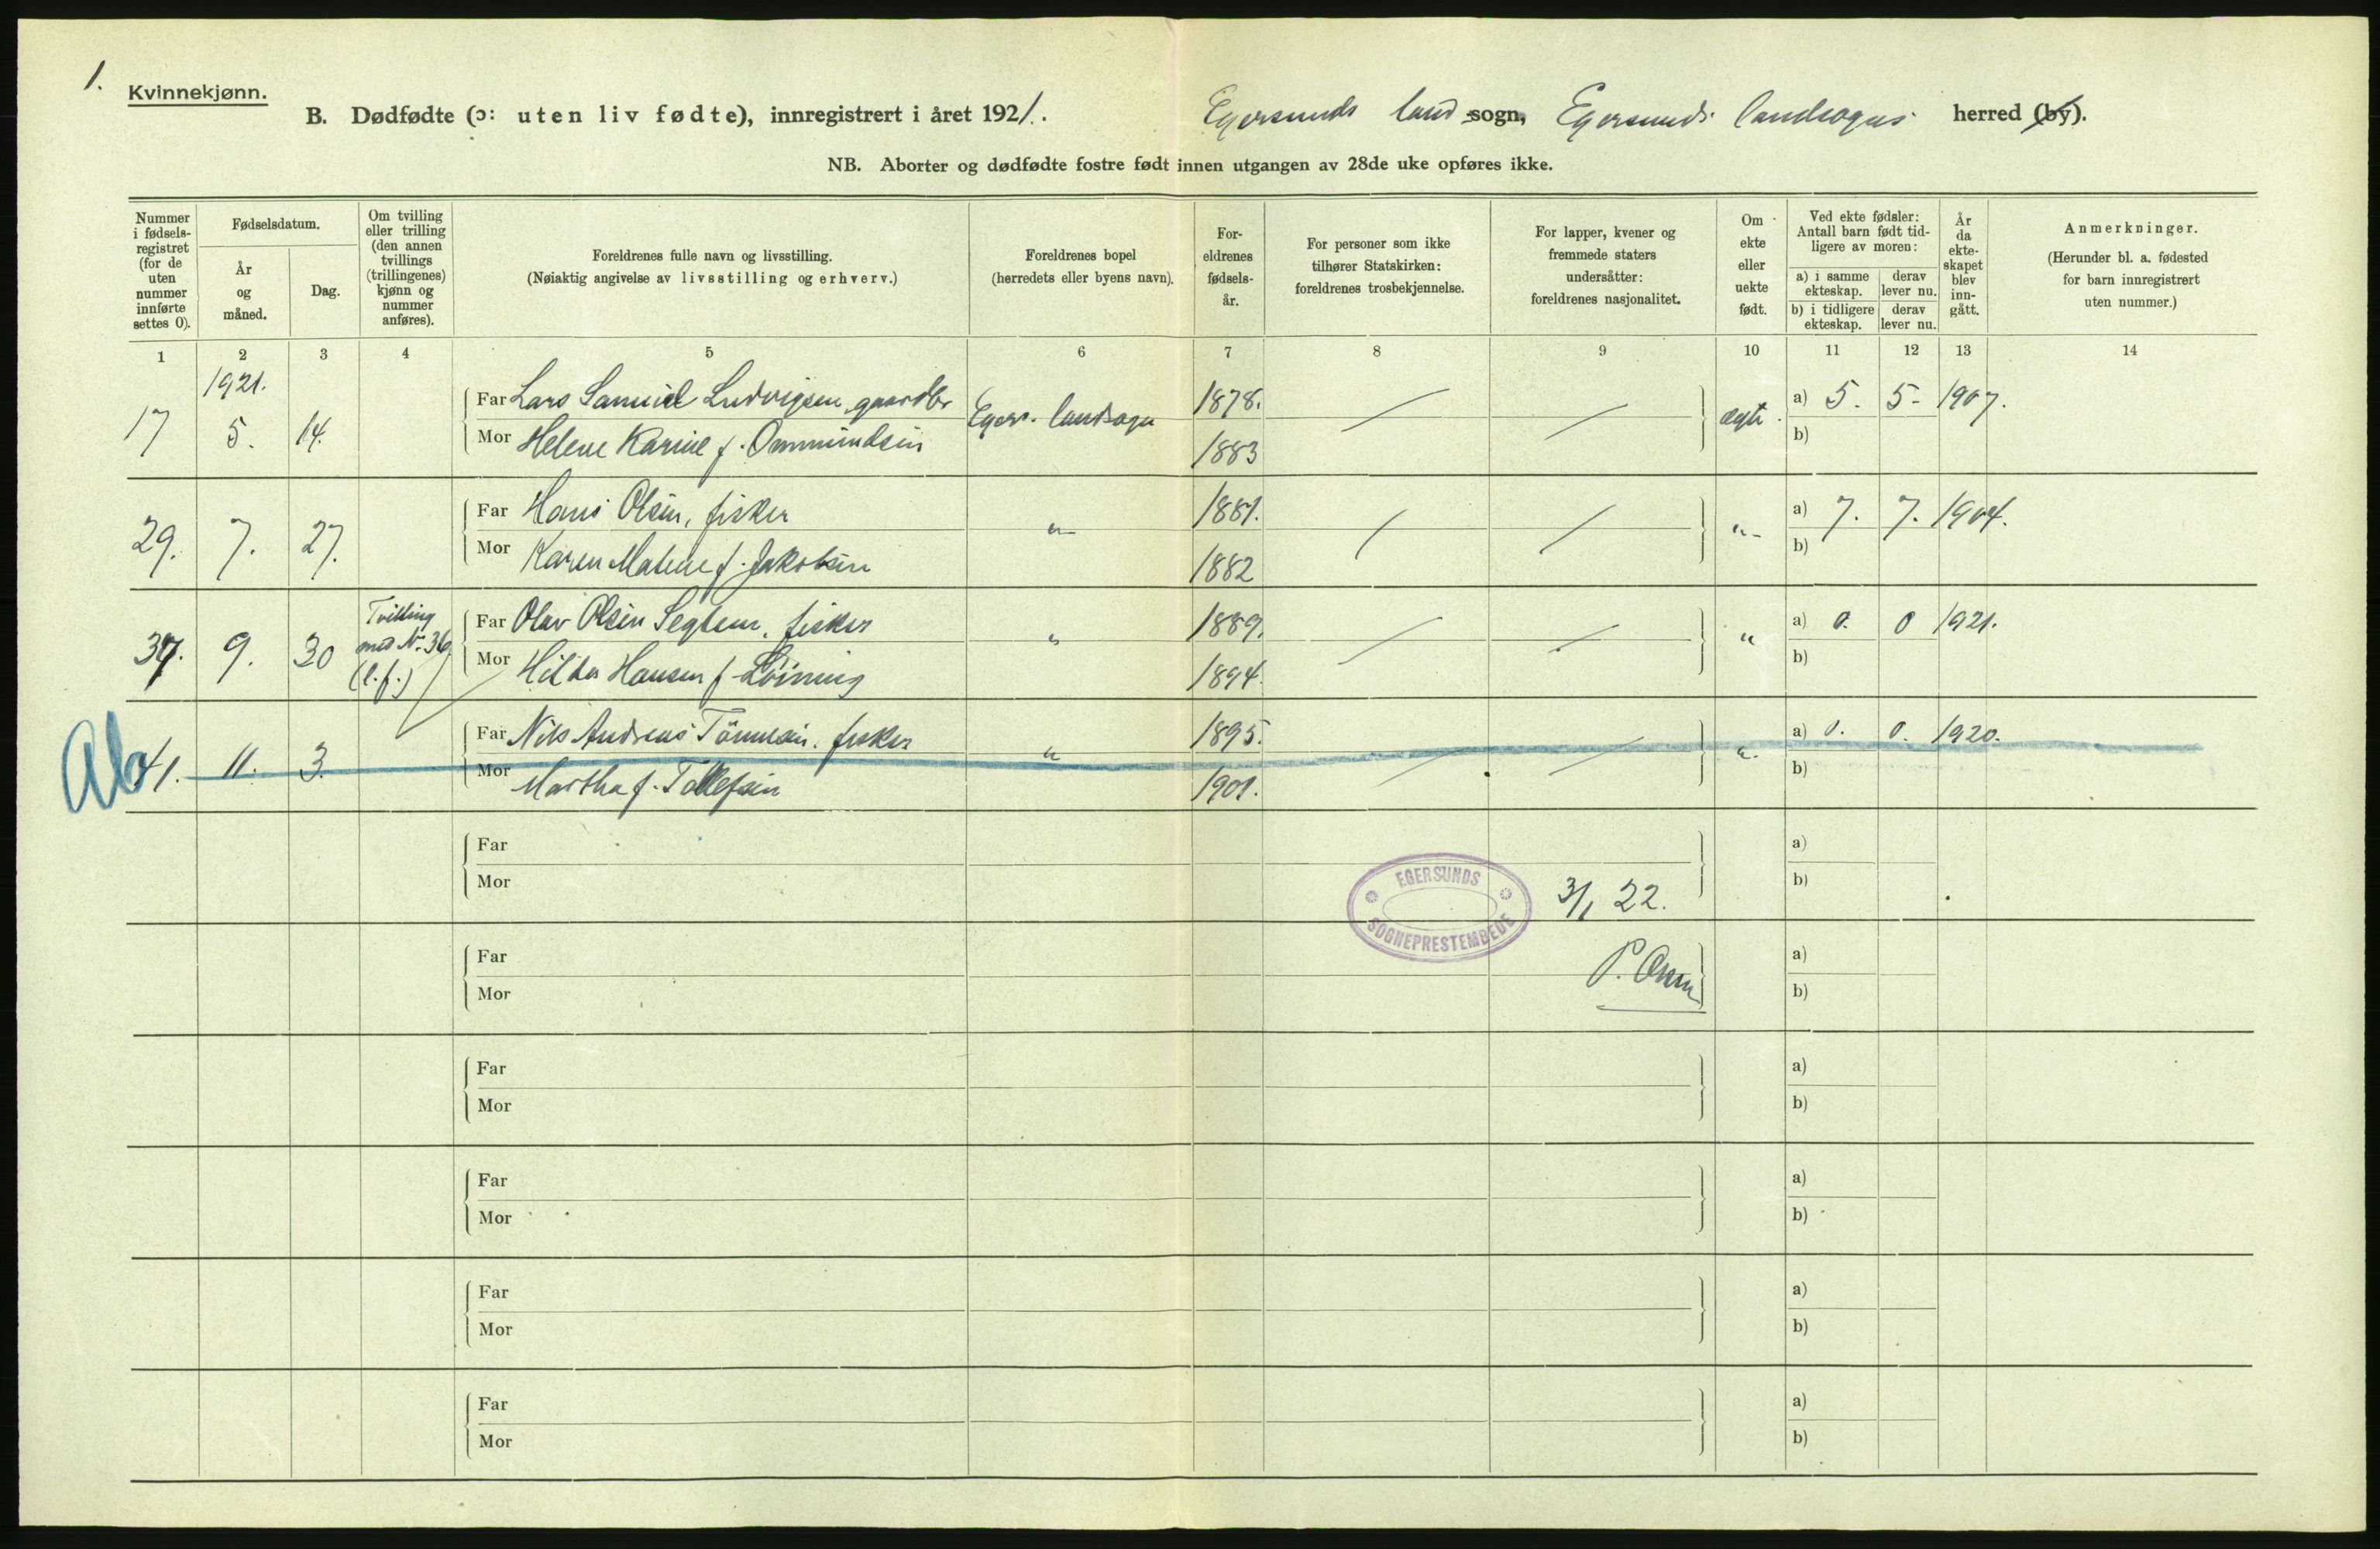 1.
Kvinnekjønn.
B. Dødfødte (ɔ: uten liv fødte), innregistrert i året 1921. Egersunds land sogn, Egersunds landsogns herred (by).
NB. Aborter og dødfødte fostre født innen utgangen av 28de uke opføres ikke.
Nummer i fødsels-registret (for de uten nummer innførte settes 0).
Fødselsdatum.
År og måned.
Dag.
Om tvilling eller trilling (den annen tvillings (trillingenes) kjønn og nummer anføres).
Foreldrenes fulle navn og livsstilling.
(Nøiaktig angivelse av livsstilling og erhverv.)
Foreldrenes bopel
(herredets eller byens navn).
For-eldrenes fødsels-år.
For personer som ikke tilhører Statskirken: foreldrenes trosbekjennelse.
For lapper, kvener og fremmede staters undersåtter: foreldrenes nasjonalitet.
Om ekte eller uekte født.
Ved ekte fødsler: Antall barn født tid-ligere av moren:
a) i samme ekteskap.
derav lever nu.
b) i tidligere ekteskap.
derav lever nu.
År da ekte-skapet blev inn-gått.
Anmerkninger.
(Herunder bl. a. fødested for barn innregistrert uten nummer.)
1 2 3 4 5 6 7 8 9 10 11 12 13 14
1921.
17 5. 14. Far Lars Samuel Ludvigsen, gaardbr Egers. landsogn 1878. ægte a) 5. 5- 1907.
Mor Helene Karine f. Ommundsen 1883 b)
29. 7. 27. Far Hans Olsen, fisker " 1881. " a) 7. 7. 1904.
Mor Karen Malene f. Jakobsen 1882 b)
37. 9. 30 Tvilling med Nr. 36 (l.f.) Far Olav Olsen fisker " 1889. " a) 0. 0 1921.
Mor Hilda Hansen f. 1894. b)
Ab
41. 11. 3. Far Nils Andreas Tønnesen. fisker " 1895. " a) 0. 0. 1920.
Mor Martha f. Tollefsen 1901. b)
Far a)
Mor b)
EGERSUNDS SOGNEPRESTEMBEDE
3/1 22.
Far a)
Mor b)
P.
Far a)
Mor b)
Far a)
Mor b)
Far a)
Mor b)
Far a)
Mor b)